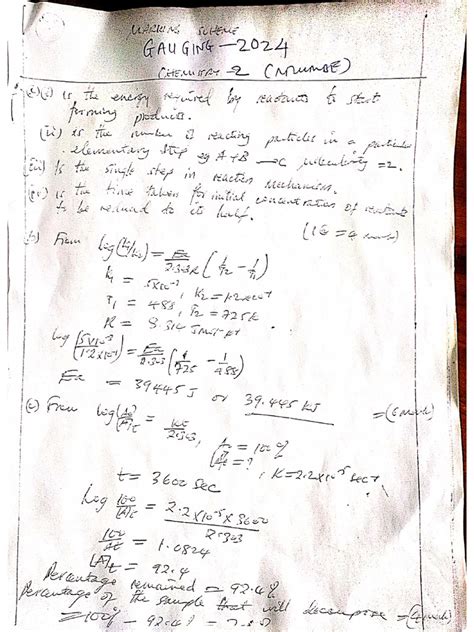 MARKING SCHEME
GAUGING - 2024
CHEMISTRY - 2 (NJOLUMBE)
(i) is the energy required by reactants to start
forming products.
(ii) is the number of reacting particles in a particular
elementary step eg A+B → C molecularity = 2.
(iii) Is the single step in reaction mechanism.
(iv) is the time taken for initial concentration of reactants
to be reduced to its half.
(b) From log(K1/K2) = Ea/2.303R (1/T2 - 1/T1)
K1 = 5x10⁻³
T1 = 485, K2 = 1.2x10⁻¹
R = 8.314 T2 = 725K
log (5x10⁻³/1.2x10⁻¹) = Ea/2.303 (1/725 - 1/485)
Ea = 39445 J or 39.445 KJ
(c) From log = Kt/2.303, A0 = 100%
[A]t = ?, K = 2.2x10⁻⁵ sec⁻¹
t = 3600 sec
log 100/[A]t = 2.2x10⁻⁵ x 3600/2.303
100/At = 1.0824
[A]t = 92.4
Percentage remained = 92.4%
Percentage of the sample that will decompose
= 100% - 92.4% =